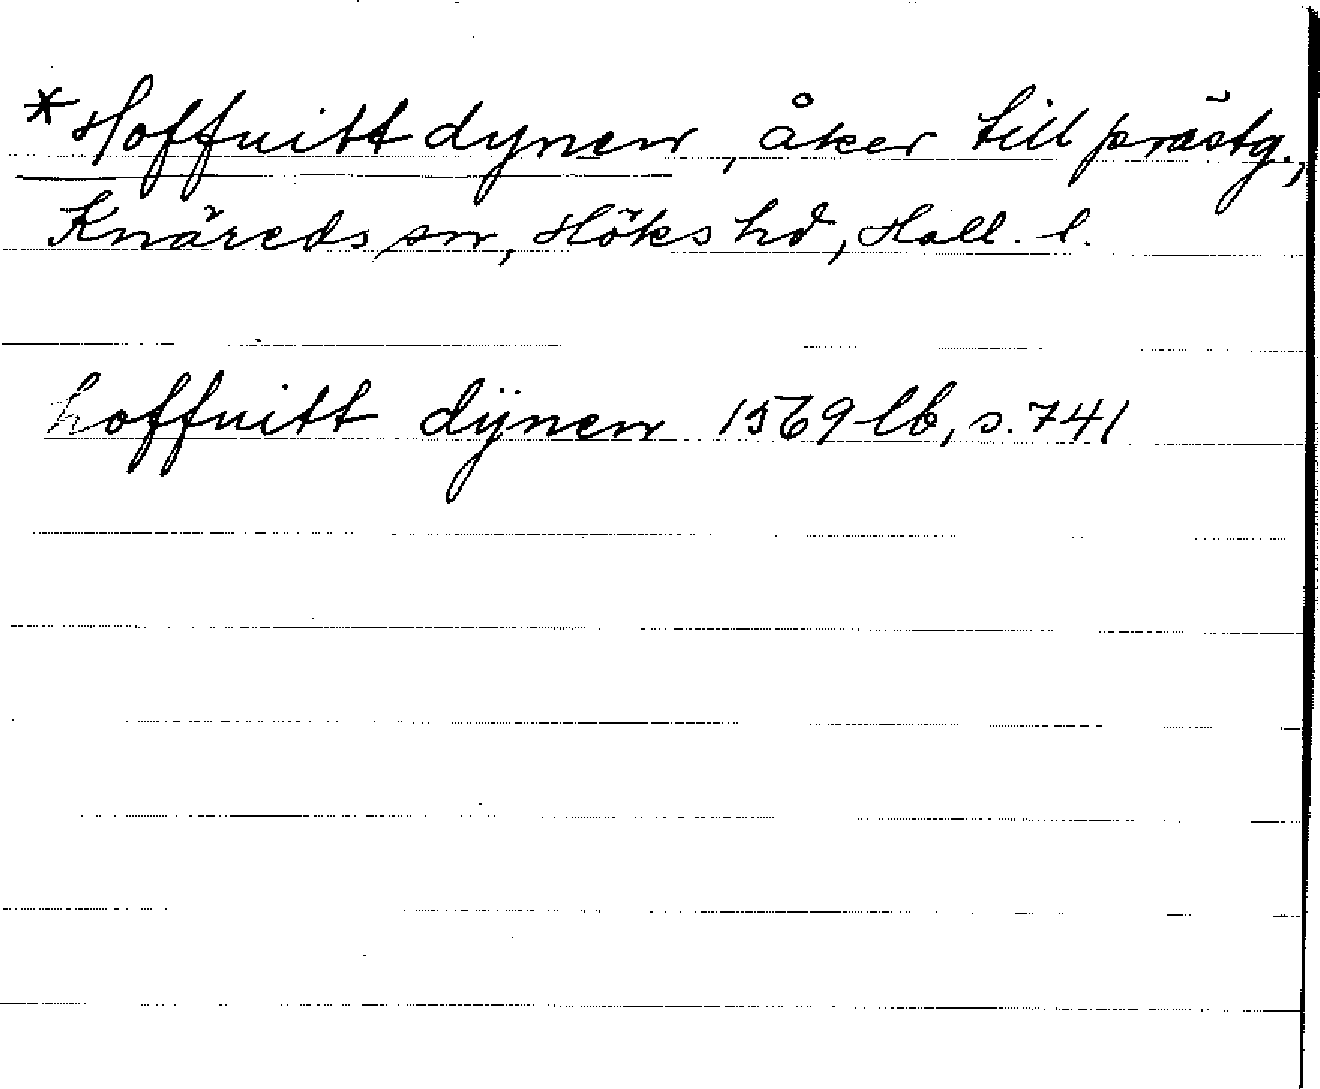 *Hoffuitt dynen, åker till prästg.,
Knäreds sn, Höks hd, Hall. l.
hoffuitt dÿnen 1569 lb, s. 741